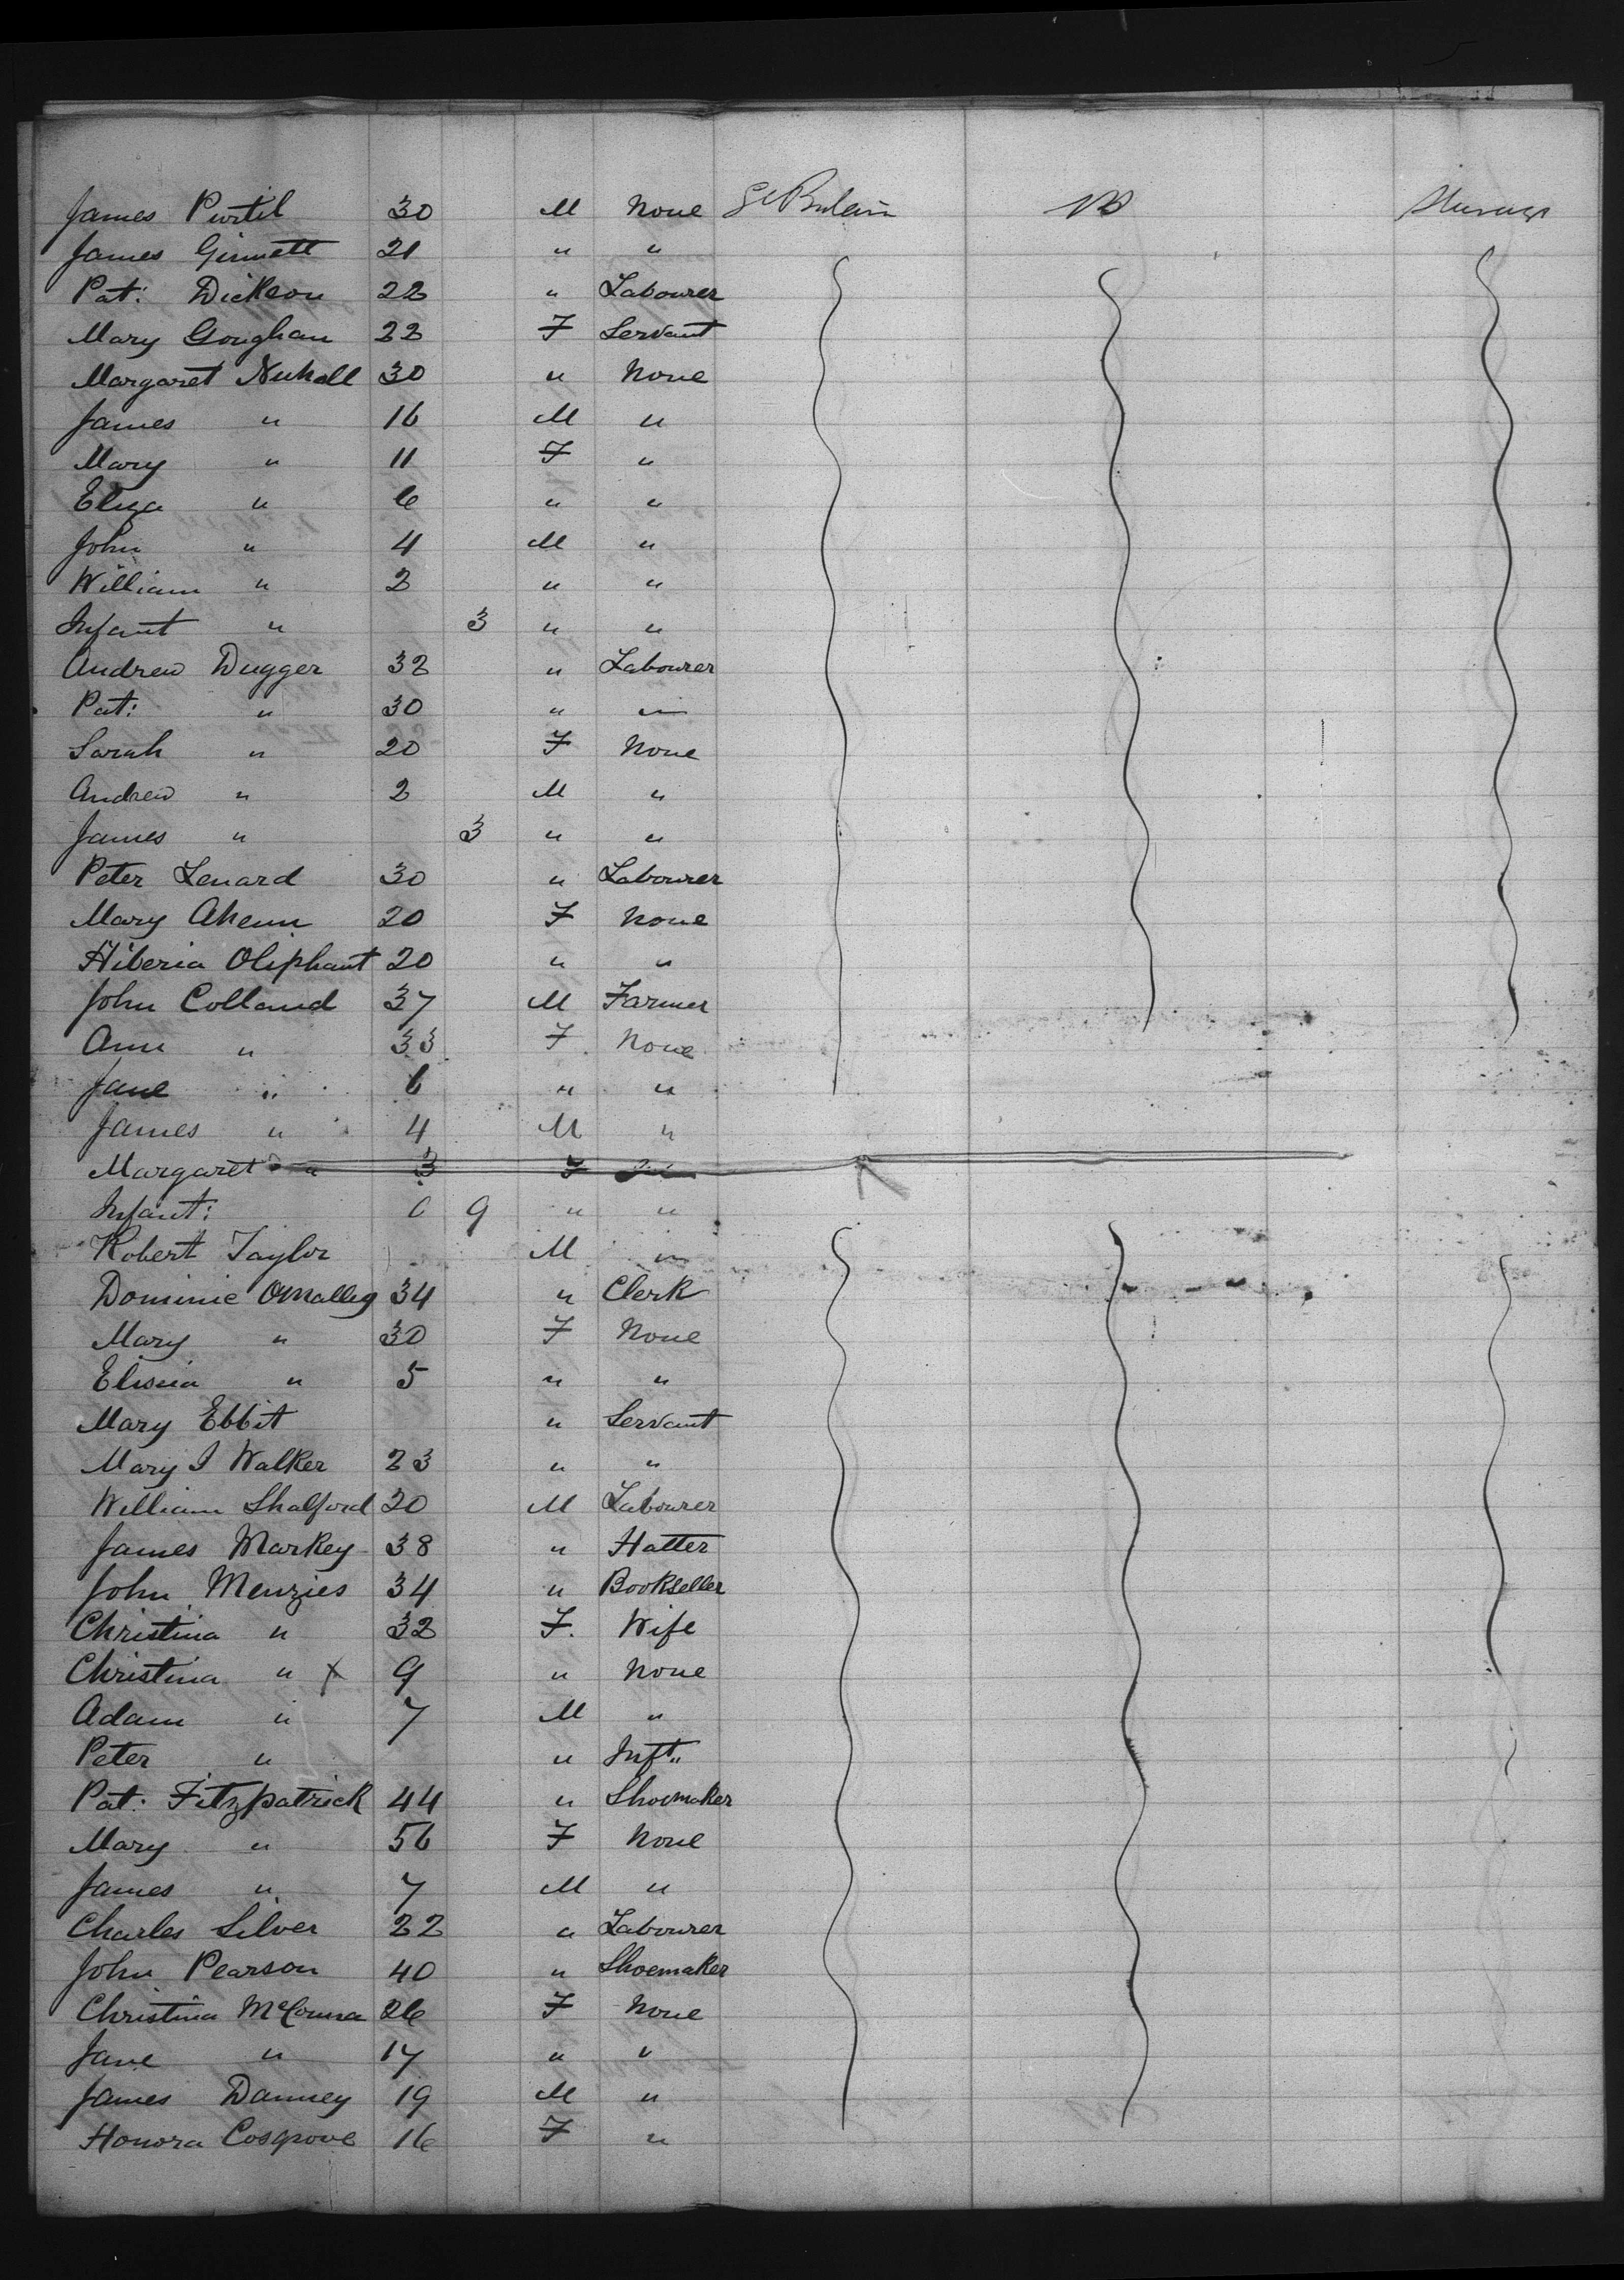 James Purtil 30 M None Gt Britain US Steerage
James Ginnett 21 " "
Pat: Dickson 22 " Labourer
Mary Goughan 22 F Servant
Margaret Nuhall 30 " None
James " 16 M "
Mary " 11 F "
Eliza " 6 " "
John " 4 M "
William " 2 " "
Infant " 3 " "
Andrew Dugger 32 " Labourer
Pat: " 30 " "
Sarah " 20 F None
Andrew " 2 M "
James " 3 " "
Peter Lenard 30 " Labourer
Mary Ahenn 20 F None
Hiberia Oliphant 20 " "
John Colland 37 M Farmer
Ann " 33 F None
Jane " 6 " "
James " 4 M "
Margaret " 3 F "
Infant: 0 9 " "
Robert Taylor M "
Dominic OMalley 34 " Clerk
Mary " 30 F None
" 5 " "
Mary Ebbit " Servant
Mary J Walker 23 " "
William Shalford 20 M Labourer
James Markey 38 " Hatter
John Menzies 34 " Bookseller
Christina " 32 F. Wife
Christina " X 9 " None
Adam " 7 M "
Peter " " Inft"
Pat: Fitzpatrick 44 " Shoemaker
Mary " 56 F None
James " 7 M "
Charles Silver 22 " Labourer
John Pearson 40 " Shoemaker
Christina 26 F None
Jane " 17 " "
James Danney 19 M "
Honora Cosgrove 16 F "